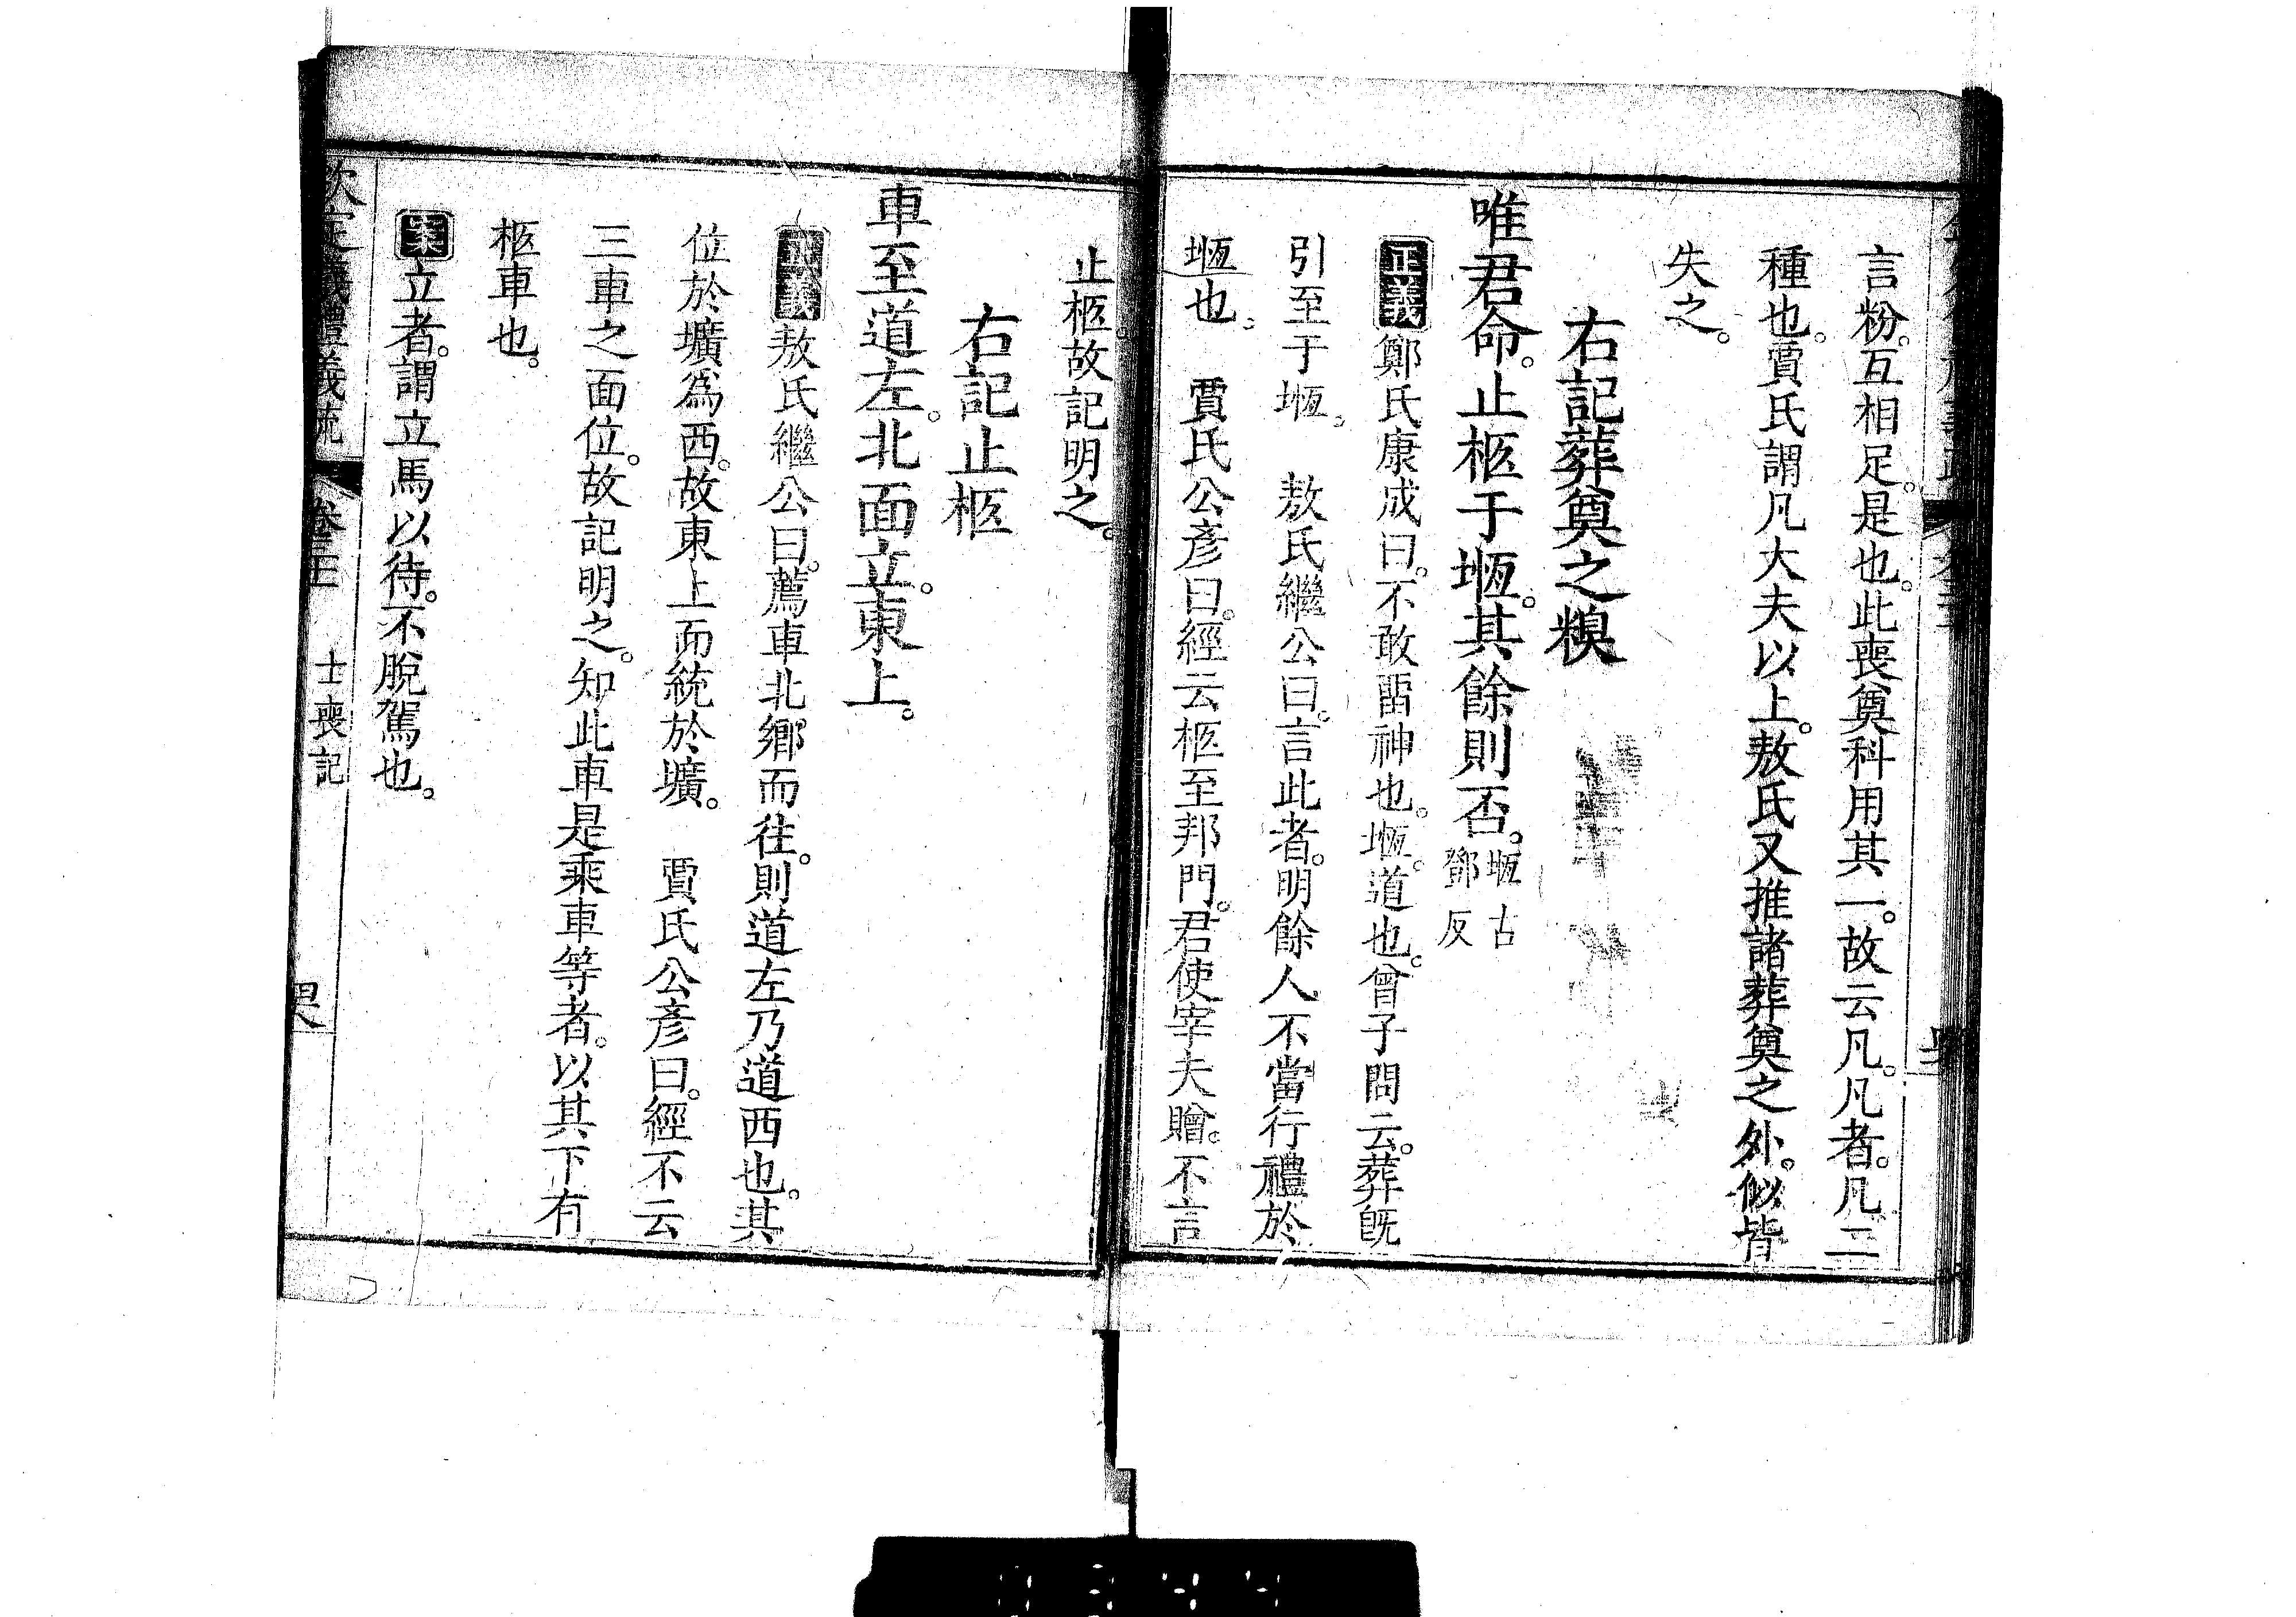 言粉。互相足。是也。此喪奠科用其一。故云凡。凡者。凡二
種也。賈氏謂凡大夫以上。敖氏又推諸葬奠之外。似皆
失之。
右記葬奠之糗
唯君命。止柩于堩。其餘則否。堩古鄧反
正義鄭氏康成曰。不敢畱神也。堩。道也。曾子問云。葬旣
引至于堩。 敖氏繼公曰。言此者。明餘人不當行禮於
堩也。 賈氏公彥曰。經云柩至邦門。君使宰夫贈。不言
止柩。故記明之。
右記止柩
車至道左。北面立。東上。
正義敖氏繼公曰。薦車北鄉而往。則道左乃道西也。其
位於壙爲西。故東上而統於壙。 賈氏公彥曰。經不云
三車之面位。故記明之。知此車是乘車等者。以其下有
柩車也。
案立者。謂立馬以待。不脫駕也。
欽定儀禮義疏 卷三 士喪記